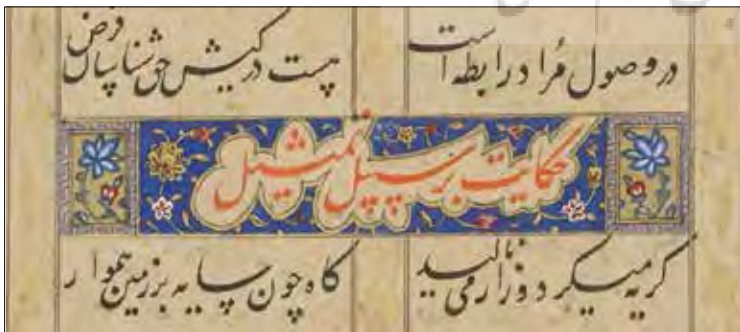 در وصول مُراد رابطه است هست در کیش حق شناسان فرض
حکایت بر سبیل تمثیل
کریه میکرد و زار می نالید کاه چون سایه بر زمین هموار